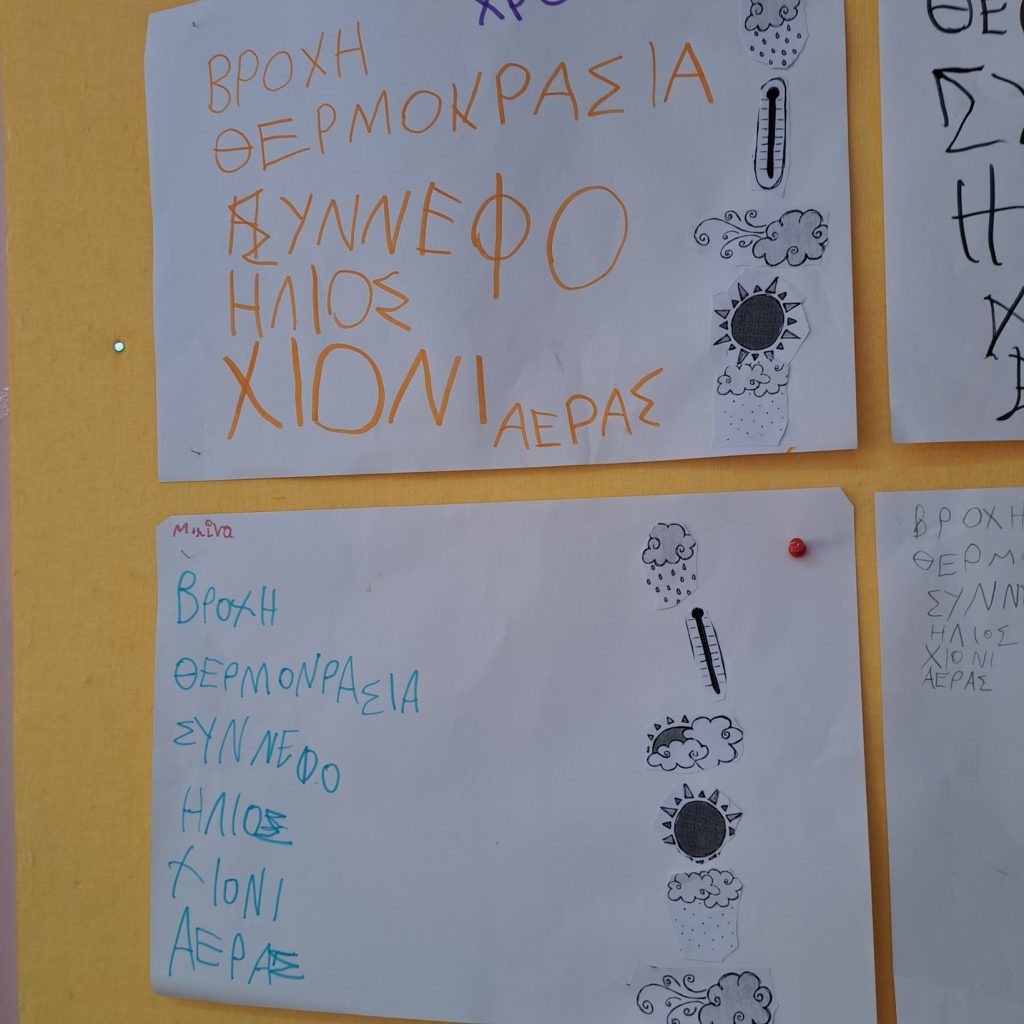 ΒΡΟΧΗ
ΘΕΡΜΟΚΡΑΣΙΑ
ΣΥΝΝΕΦΟ
ΗΛΙΟΣ
ΧΙΟΝΙ ΑΕΡΑΣ
ΒΡΟΧΗ
ΘΕΡΜΟΝΡΑΣΙΑ
ΣΥΝΝΕΦΟ
ΗΛΙΟΣ
ΧΙΟΝΙ
ΑΕΡΑΣ
ΒΡΟΧΗ
ΗΛΙΟΣ
ΧΙΟΝΙ
ΑΕΡΑΣ